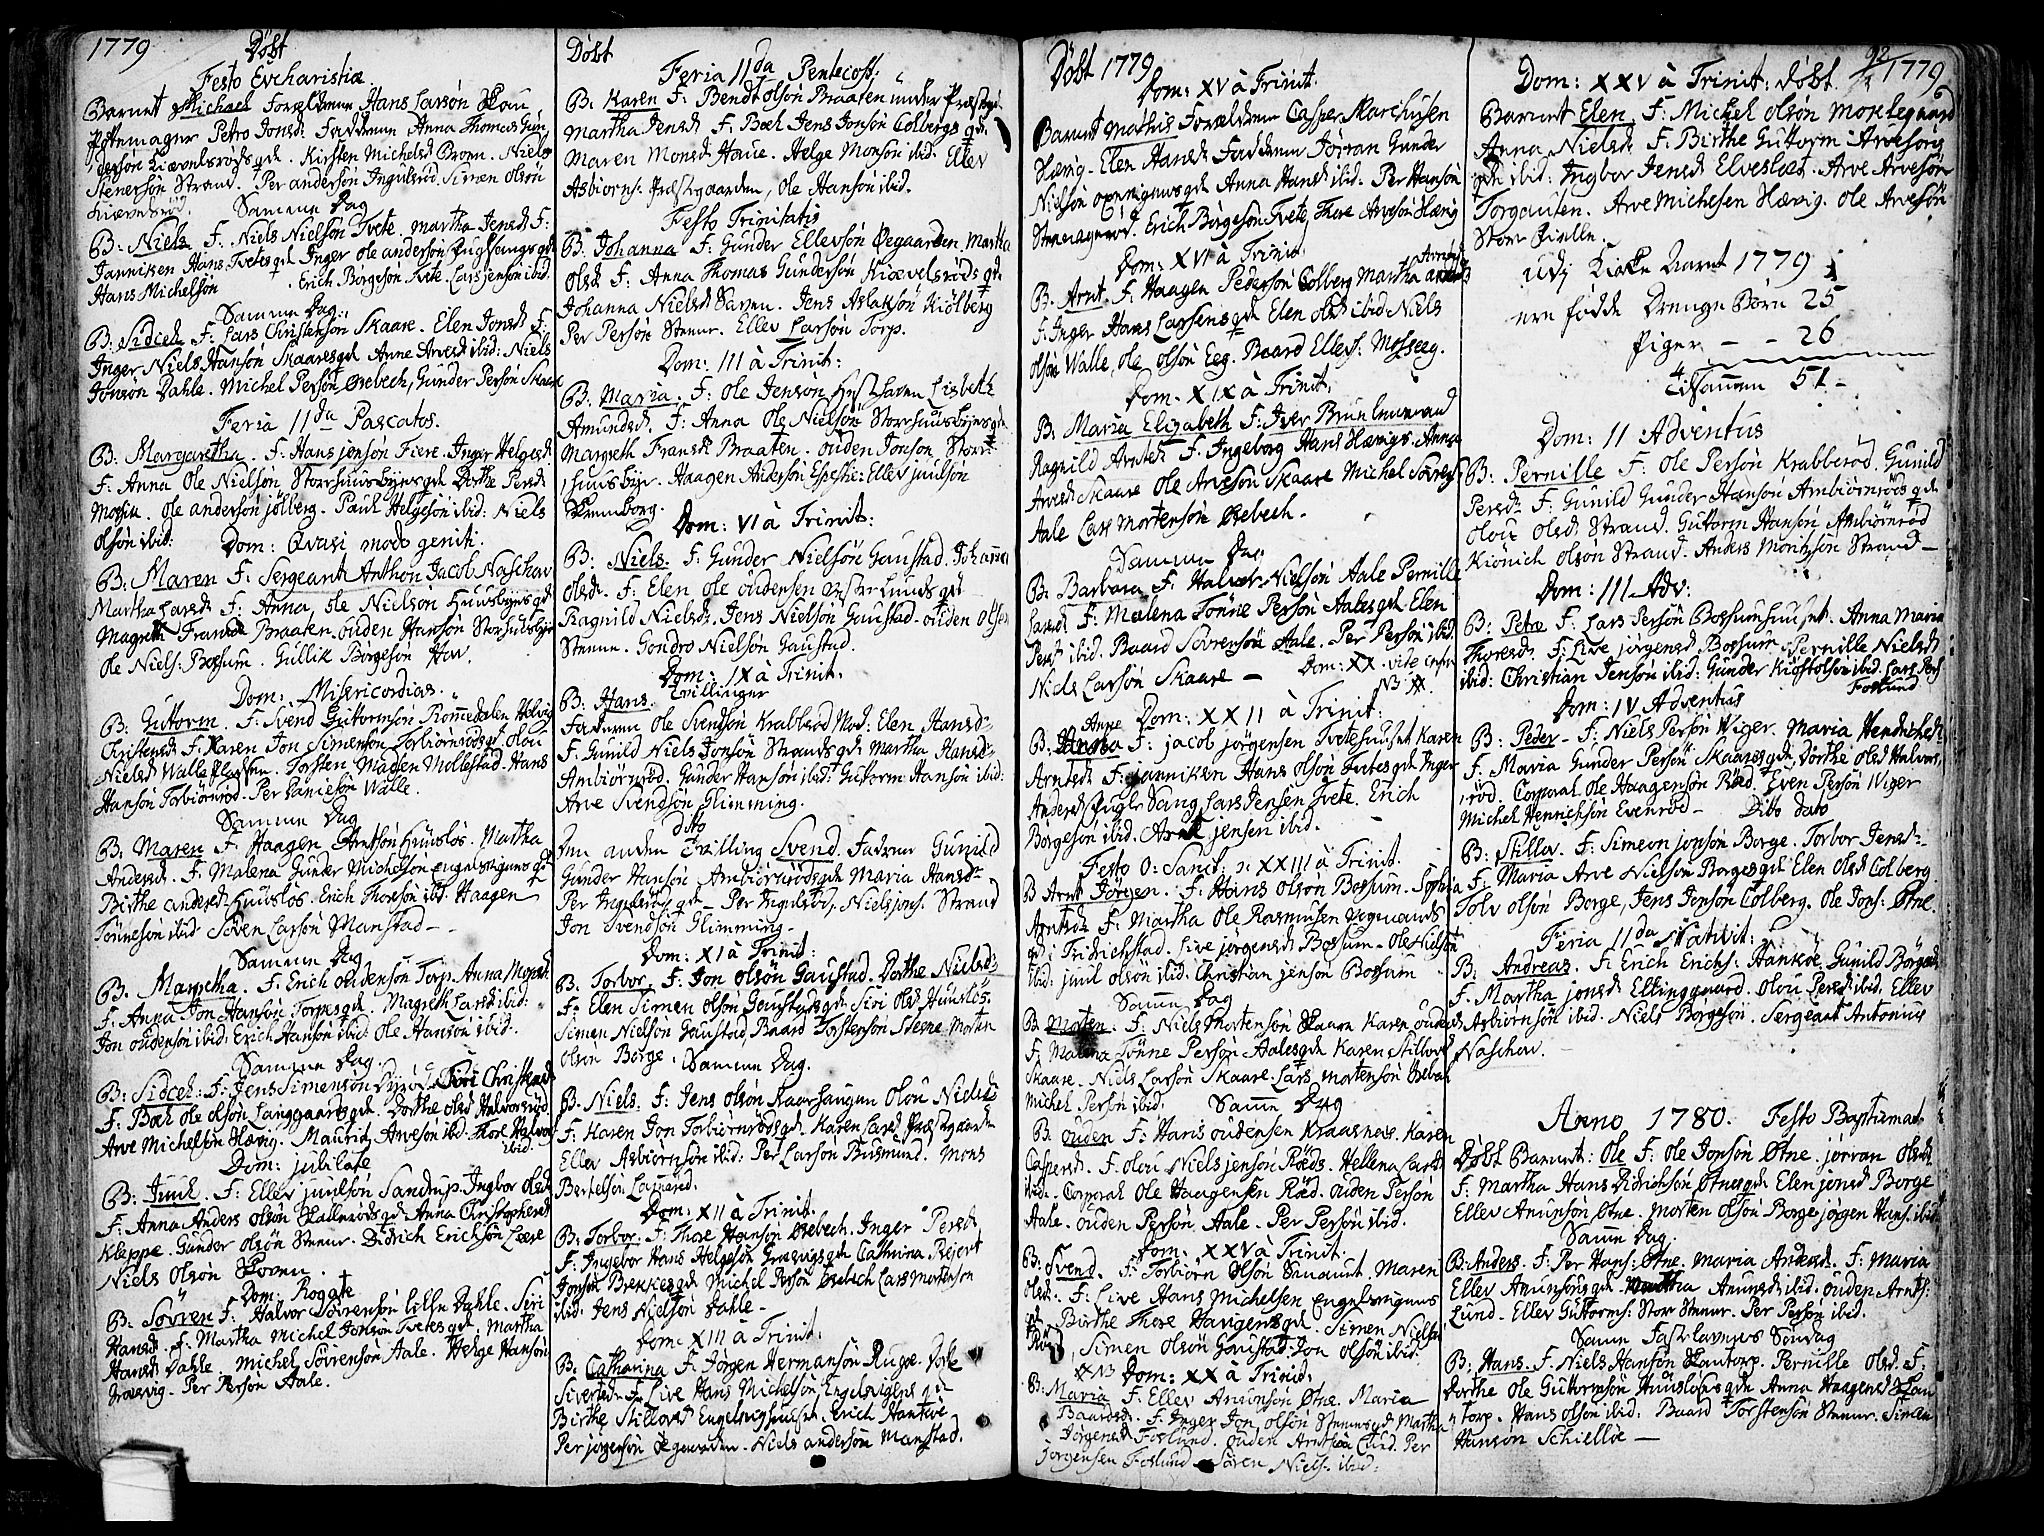 1779 Döbt
Festo Evcharistiæ
Barnet Michael Forældrene Hans Larsön
Pottemager Petro Jonsd: Fadderne Anna Thomas Gun
derson Kiærelsröds gde. Kirsten Michelsd Broen. Niels
Stenersön Strand. Per andersön Ingulsröd. Simen olsön
Kiærelsröd. Samme Dag
B: Niels F. Niels Nielsön Tvete. Martha Jensd F:
Janniken Hans Tvetes gde Inger ole andersön Fuglesangs gde
Hans Michelsön Erich Börgesön Tvete. Lars jensön ibid.
Samme Dag.
B: Sidcel F. Lars Christensön Skaare. Elen Jonsd F.
Inger Niels Hansön Skaares gde Anne Arvesd ibid: Niels
Jonsön Dahle. Michel Persön Ørebech, Gunder Persön Skaare
Feria IIda Pascatos.
B: Margaretha. F: Hans jonsön Fiere. Inger Helgesd
F. Anna Ole Nielsön Storhuusbyes gde Dorthe Persd
ole andersön jölberg. Paul Helgesön ibid: Niels
olsön ibid. Dom: Qvasi modo geniti.
B: Maren F: Sergeant Anthon Jacob Naschow
Martha Larsd: F: Anna ole Nielsön Huusbyes gde
Magreth Fransd: Braaten. ouden Hansön Storhusbye
Ole Niels: Bossum. Gullik Börgesön Hov.
Dom: Misericordias.
B: Guttorm. F: Svend Guttormsön Helvig
Christensd F. Karen Jon Simensön Torbiörnröds gde olou
Nielsd Walle Pladsen. Torsten Magen Mollestad. Hans
Hansön Torbiörnröd. Per Danielsön Walle.
Samme Dag
B: Maren F. Haagen Huuslös. Martha
Andersd. F. Malena Gunder Michelsön Engelsvigens gde
Birthe andersd Huuslös. Erich Thoresön ibid. Haagen
Tönnesön ibid Sören Larsön Manstad
Samme Dag
B. Margetha. F. Erich oudensön Torp. Anna Monsd
F. Anna Jon Hansön Torps gde. Magreth Larsd ibid:
Jon oudensön ibid: Erich Hansön ibid ole Hansön ibid.
Samme Dag.
B: Sidcel: F: Jens Simensön Siri Christensd
F. Boel ole olsön Langgaards gde. Dorthe olsd Halvorsröd
Arve Michelsön Hævig. Mauritz Arvesön ibid. Thore Halvor
ibid.
Dom: jubilate
B: Juul. F: Ellev juulsön Sandrup. Ingbor olsd
F. Anna Anders olsön gde Anna Christophersd
Kleppe. Gunder olsön Stenne. Didrich Erichsön Leere
Niels Olsön
Dom: Rogate
B: Sövren F: Halvor Sövrensön Lille Dahle. Siri
Hansd. F. Martha Michel Jonsön Tvetes gde. Martha
Hansd Dahle. Michel Sövrensön Aale. Helge Hansön
Græsvig. Per Persön Aale.

Döbt
Feria IIda Pentecost:
B. Karen F: Bendt olsön Braaten under Præstegd
Martha Jensd F: Boel Jens Jonsön Colbergs gde
Maren Monsd Haue. Helge Monsön ibid. Ellev
Asbiörns: Præstegaarden, ole Hansön ibid.
Festo Trinitatis
B: Johanna F: Gunder Ellevsön Øegaarden Martha
olsd F: Anna Thomas Gundersön Kiærelsröds gde
Johanna Nielsd Jens Aslaksön Kiölberg
Per Persön Stenne. Ellev Larsön Torp.
Dom: III à Trinit:
B: Maria. F: ole Jensön Lisbeth
Amundsd. F: Anna ole Nielsön Storhuusbyes gde
Magreth Fransd: Braaten. ouden Jonsön Storr
huusbye. Haagen Andersön Ellev juulsön
Dom: VI à Trinit:
B: Niels. F: Gunder Nielsön Gaustad. Johanna
olsd. F: Elen ole oudensön Vesterlunds gde
Ragnild Nielsd. Jens Nielsön Gaustad. ouden Olsön
Stenne. Gondro Nielsön Gaustad.
Dom: IX à Trinit.
Tvillinger
B: Hans.
Faderen ole Svendsön Krabberöd Mod: Elen Hansd
F. Gunild Niels Jonsön Strands gde Martha Hansd
Ambiörnröd. Gunder Hansön ibid: Guttorm Hansön ibid:
Arve Svendsön Glimming.
dito
Den anden Tvilling Svend. Faderne Gunild
Gunder Hansön Ambiörnröds gde Maria Hansd
Per Ingulsröds gde Per Ingulsröd. Niels jons. Strand
Jon Svendsön Glimming
Dom: XI à Trinit:
B: Torbor. F: Jon olsön Gaustad. Dorthe Nielsd:
F: Elen Simen olsön Gaustads gde Siri olsd Huuslös.
Simen Nielsön Gaustad, Baard Torstensön Steene Morten
olsön Borge. Samme Dag.
B. Niels. F: Jens olsön olou Nielsd
F. Karen Jon Torbiörnröds gde Karen Larsd Præstegaarden
Ellev Asbiörnsön ibid: Per Larsön Buemund. Mons
Bertelsön
Dom: XII à Trinit.
B: Torbor F: Thore Hansön Ørebech. Inger Persd
F. Ingebor Hans Helgesön Græsvigs gde Cathrina
Jonsön Brekkes gde Michel Persön Ørebech Lars Mortensön
ibid. Jens Nielsön Dahle
Dom: XIII à Trinit:
B: Catharina F. Jörgen Hermansön Rugoe. Dorte
Sivertsd F. Live Hans Michelsön Engelsvigens gde
Birthe Stillovsd Engelsvighuuset. Erich Hankoe
Per jörgensön Øegaarden. Niels andersön Manstad.

Döbt 1779
Dom: XV à Trinit.
Barnet Mathis Forældrene Casper Marchusen
Hævig. Elen Hansd Fadderne Jörran Gunder
Nielsön gde Anna Hansd ibid. Per Hansön
Erich Börgesön Tvete, Thore Arvesön Hævig
Dom: XVI à Trinit. Arnesd
B: Arnt. F: Haagen Pedersön Colberg Martha
F. Inger Hans Larsens gde Elen olsd ibid Niels
olsön Walle, ole olsön Eeg. Baard Ellevs: Mosseeg.
Dom. XIX à Trinit.
B: Maria Elizabeth F: Iver
Ragnild Arntsd F. Ingeborg Hans Hævigs. Anna
Arvesd Skaare ole Arvesön Skaare Michel Sövrens
Aale Lars Mortensön Ørebech.
Samme Dag
B: Barbara F. Halvor Nielsön Aale Pernille
Larsd F: Malena Tönne Persön Aales gde Elen
Persd ibid. Baard Sövrensön Aale. Per Persön ibid.
Niels Larsön Skaare Dom: XX vide infra
NB XX.
Dom: XXII à Trinit:
Anne
B. F: jacob jörgensen Tvetehuuset Karen
Arntsd F: janniken Hans olsön Tvetes gde Inger
Anders Fugle Sang Lars Jensen Tvete. Erich
Börgesön ibid. Arne jensen ibid.
Festo O: Sanct. XXIII à Trinit.
B Arnt Jörgen. F: Hans olsön Bossum. Sophia
Arntsd F: Martha ole Rasmusen
gde i Fridrichstad. Live jörgensd Bossum. ole Nielsön
ibid. juul olsön ibid. Christian jensön Bossum
Samme Dag
B. Morten. F: Niels Mortensön Skaare Karen oudensd
F. Malena Tönne Persön Aales gde Karen Stillovsd
Skaare. Niels Larsön Skaare. Lars Mortensön Ørebech
Michel Persön ibid. Samme Dag
B. ouden F: Hans oudensen Kraagnes. Karen
Caspersd. F. olou Niels jensön Röds. Hellena Larsd
ibid. Corporal ole Haagensen Röd. ouden Persön
Aale. ouden Persön Aale. Per Persön ibid.
Dom: XXV à Trinit.
B: Svend. F: Torbiörn olsön Maren
olsd. F: Live Hans Michelsen Engelsvigens
gd. Birthe Thore Haugens gde. Simen Nielsön
Simen olsön Gaustad. Jon olsön ibid.
XX NB Dom: XX à Trinit:
B: Maria F. Ellev Amunsön Øtne. Maria
Baardsd. F. Inger Jon olsön Stennes gde Martha
Jörgensd Foslund. ouden Arntsön Lund. Per
Jorgensen Foslund Sören Niels: ibid:

Dom: XXV à Trinit: döbt. 92 1779
Barnet Elen. F: Michel olsön Mordegaard
Anna Nielsd. F. Birthe Guttorm Arvesöns
gde ibid: Ingbor Jensd Elveslet. Arve Arvesön
Torgauten. Arve Michelsen Hævig. ole Arvesön
Storr
udj Kirke Aaret 1779
ere fødde Drenge Börn 25
Piger - - 26
Tilsammen 51 -
Dom: II Adventus
B: Pernille F: ole Persön Krabberöd. Gunild
Persd. F: Gunild Gunder Hansön Ambiörnröds gde
olou olsd Strand. Guttorm Hansön Ambiörnröd
Kiönich olson Strand. Anders Moritzsön Strand
Dom: III Adv:
B: Petro F: Lars Persön Bossumhuuset. Anna Maria
Thoresd. F: Live jörgensd Bossum. Pernille Nielsd
ibid: Christian Jensön ibid: Gunder Kiöstolsön ibid. Lars Pers
Foslund
Dom: IV Adventus
B: Peder F: Niels Persön Wiger. Maria Hendrichsd
F: Maria Gunder Persön Skaares gde, Dorthe olsd Halvors
röd. Corporal ole Haagensön Röd. Even Persön Wiger
Michel Henrichsön Evenröd Ditto Dato
B: Stillov. F: Simeon jonsön Borge. Torbor Jensd
F: Maria Arve Nielsön Borges gde Elen olsd Colberg.
Tolv olsön Borge, Jens Jonsön Colberg. ole Jons: Øtne.
Feria IIda Nativit:
B: Andreas. F: Erich Erichs: Hankoe. Gunild Börgesd
F. Martha jonsd Ellinggaard. olou Persd ibid. Ellev
Asbiörnsön ibid. Niels Borgesön. Sergeant Antonius
Naschow.
Anno 1780. Festo Baptismat
Döbt Barnet: ole F: ole Jonsön Øtne. jörran olsd.
F. Martha Hans Didrichsön Øtnes gde Elen jonsd Borge
Ellev Amunsön Øtne. Morten olsön Borge jörgen Hans: ibid:
Samme Dag.
B: Anders. F: Per Hans: Øtne. Maria Andersd. F: Maria
Ellev Amunsöns gde Martha Amunsd ibid. ouden Arnts:
Lund. Ellev Guttorms: Stor Stenne. Per Persön ibid.
Samme Fastelavns Söndag
B: Hans. F. Niels Hansön Skantorp. Pernille olsd. F:
Dorthe ole Guttormsön Huuslös gde Anna Haagensd Skan
torp. Hans olsön ibid: Baard Torstensön Stenne. Simen
Hansön Schielloe